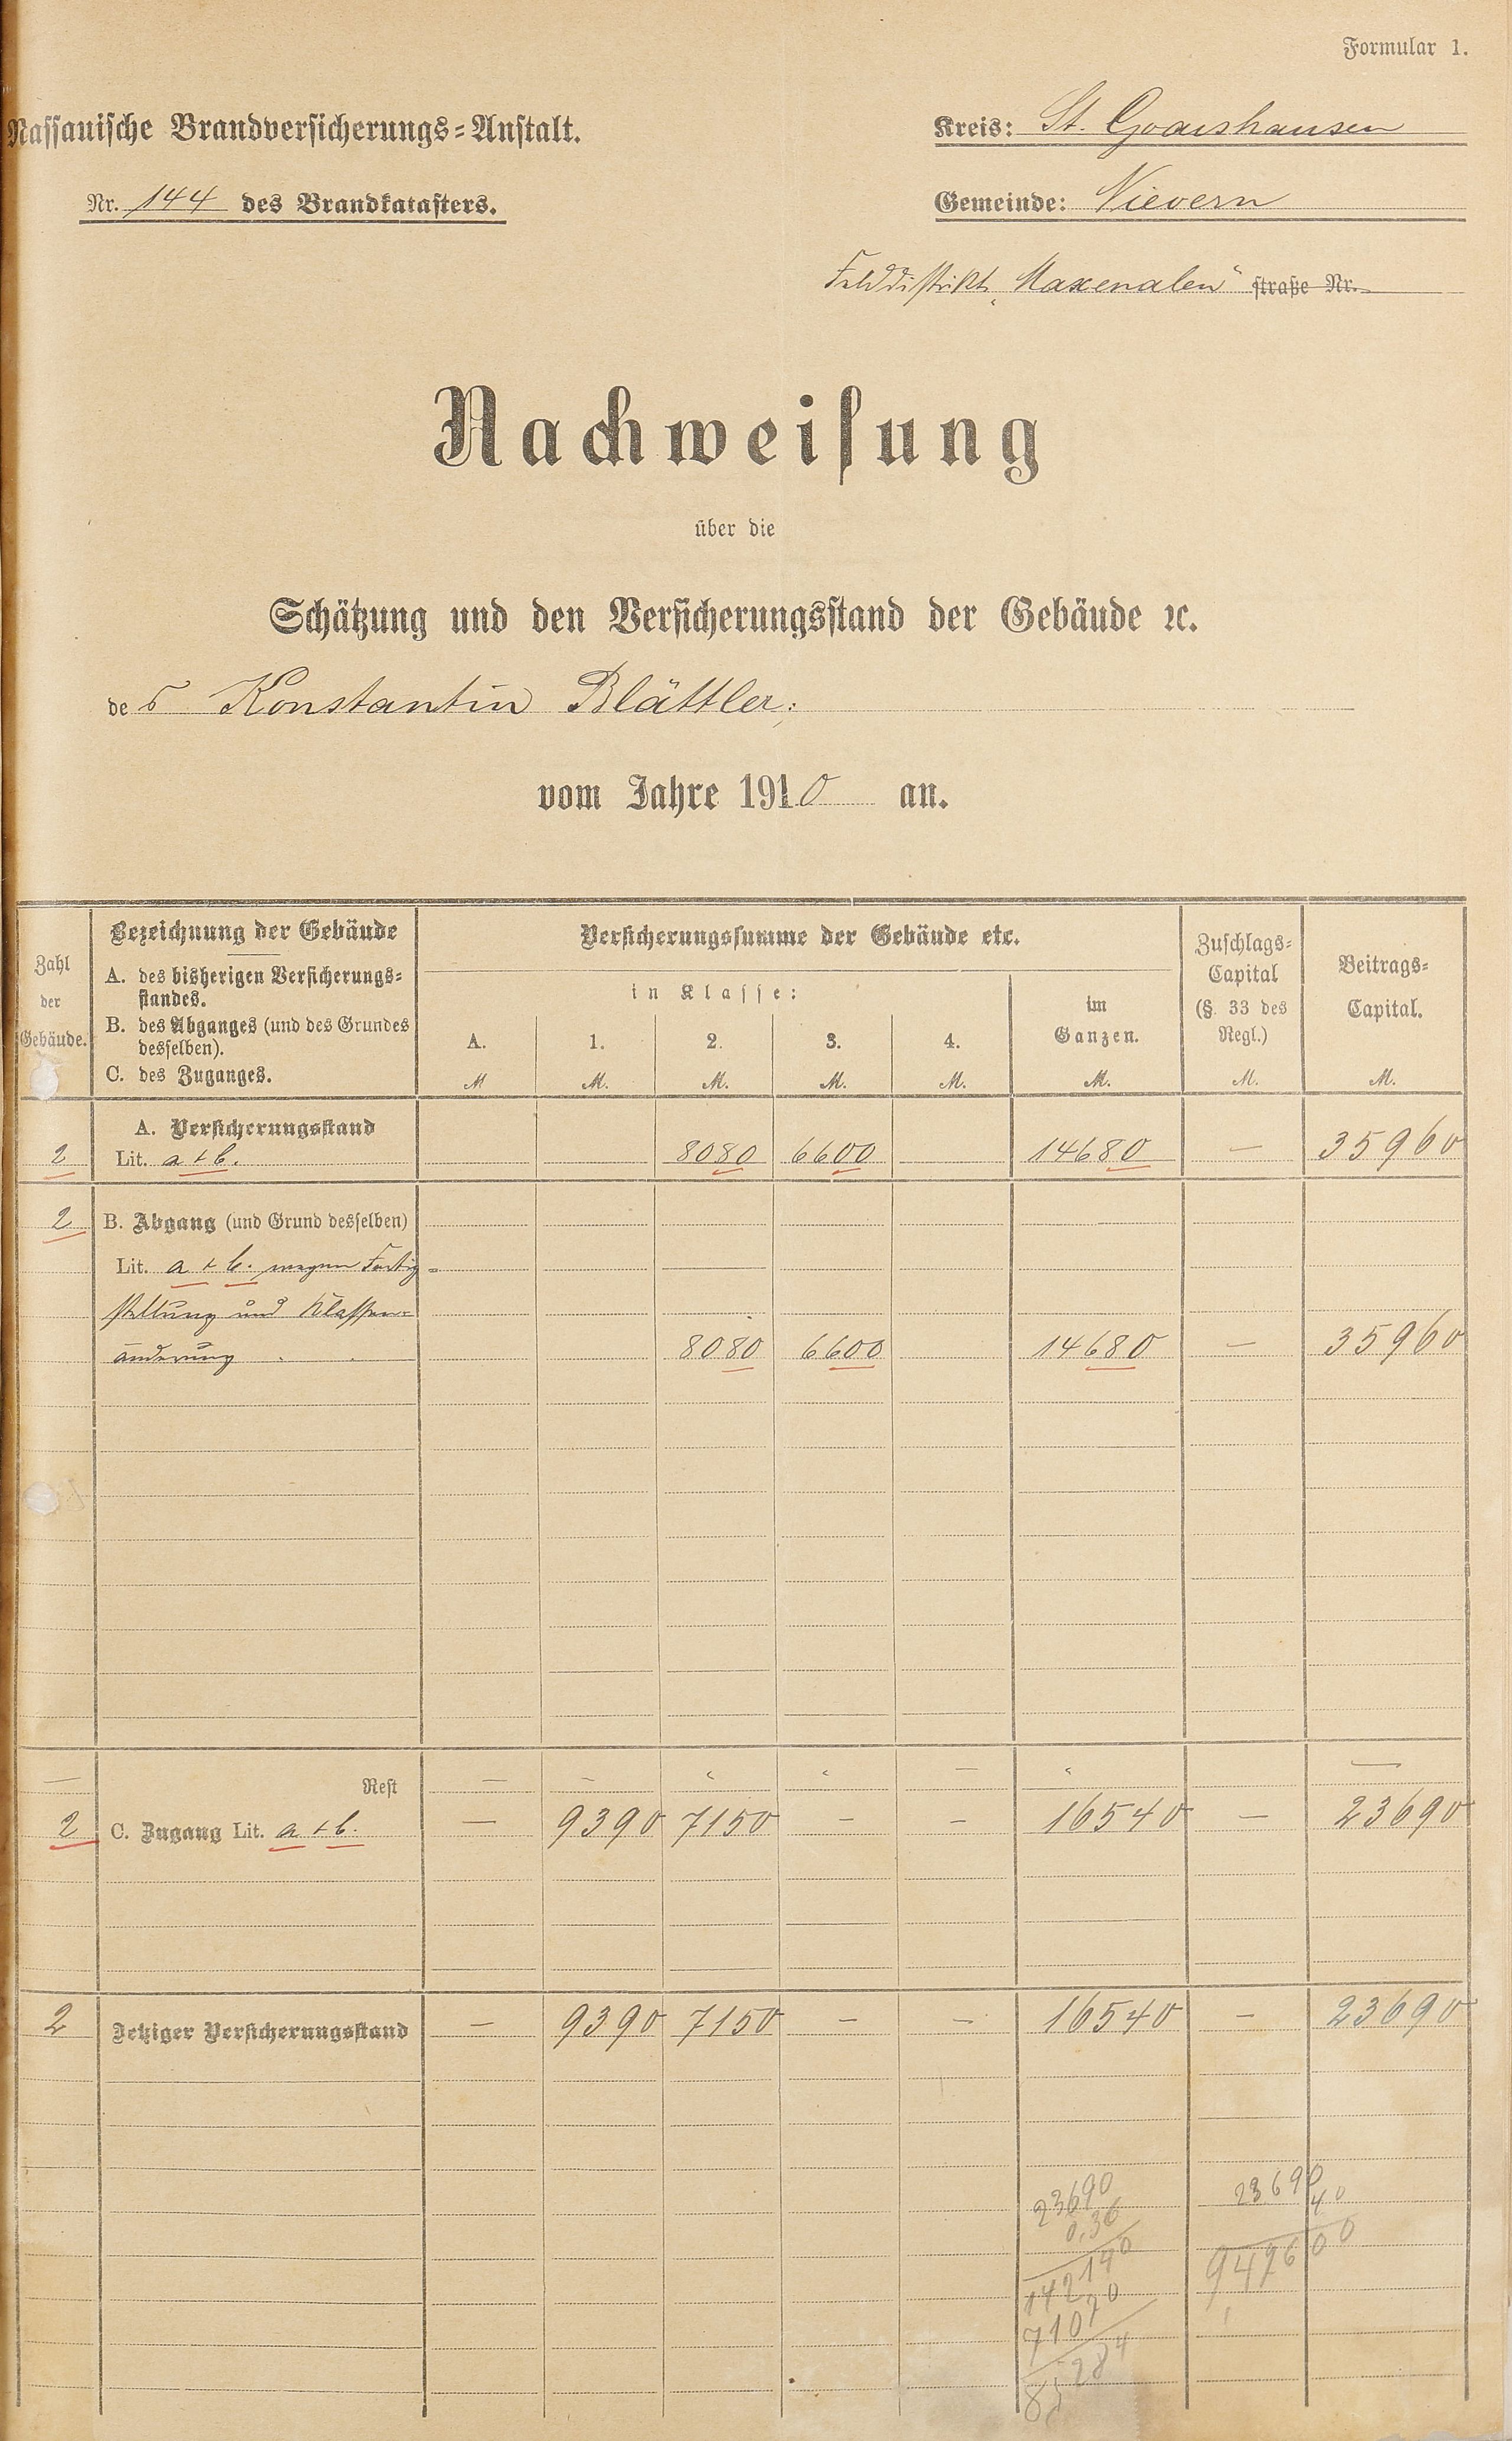 Formular 1.
Nassauische Brandversicherungs=Anstalt.
Kreis: St. Goarshausen
Nr. 144 des Brandkatasters.
Gemeinde: Nievern
Felddistrikt „Maxenalen“ straße Nr.
Nachweisung
über die
Schätzung und den Versicherungsstand der Gebäude ꝛc.
des Konstantin Blättler.
vom Jahre 1910 an.
Zahl der Gebäude.
Bezeichnung der Gebäude
A. des bisherigen Versicherungs=
standes.
B. des Abganges (und des Grundes
desselben).
C. des Zuganges.
Versicherungssumme der Gebäude etc.
in Klasse:
A. 1. 2. 3. 4.
M M. M. M. M.
im
Ganzen.
M.
Zuschlags=
Capital
(§. 33 des
Regl.)
M.
Beitrags=
Capital.
M.
A. Versicherungsstand
2 Lit. a + b. 8080 6600 14680 — 35960
2 B. Abgang (und Grund desselben)
Lit. a + b. wegen Fertig=
stellung und Klassen=
änderung 8080 6600 14680 — 35960
— Rest — — — —
2 C. Zugang Lit. a + b. — 9390 7150 — — 16540 — 23690
2 Jetziger Versicherungsstand — 9390 7150 — — 16540 — 23690
23690 23690
0,36 40
142140 947600
71070
85284